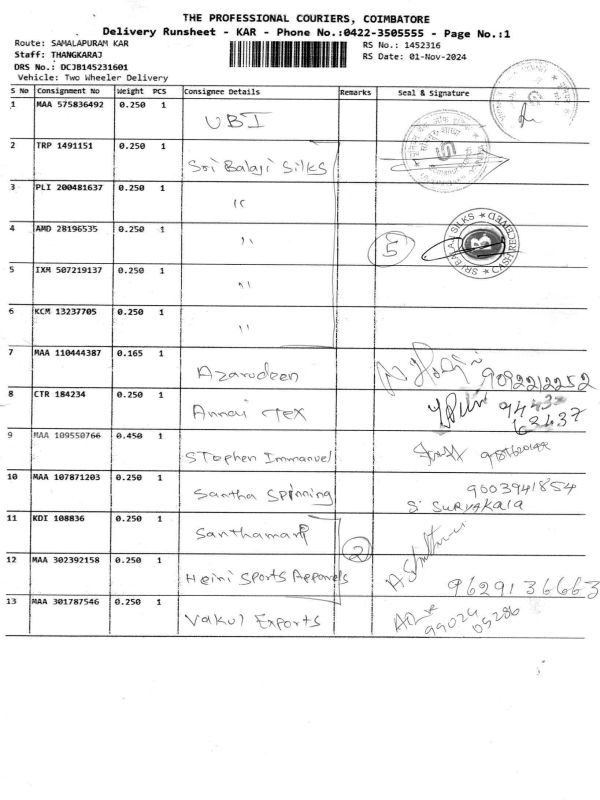 THE PROFESSIONAL COURIERS, COIMBATORE
Delivery Runsheet - KAR - Phone No.:0422-3505555 - Page No.:1
Route: SAMALAPURAM KAR
Staff: THANGKARAJ
DRS No.: DCJB145231601
Vehicle: Two Wheeler Delivery
RS No.: 1452316
RS Date: 01-Nov-2024
S No Consignment No Weight PCS Consignee Details Remarks Seal & Signature
1 MAA 575836492 0.250 1 UBI
2 TRP 1491151 0.250 1 Sri Balaji Silks
3 PLI 200481637 0.250 1 "
4 AMD 28196535 0.250 1 " 5 SRI BALAJI SILKS ★ CASH RECEIVED ★
5 IXM 507219137 0.250 1 "
6 KCM 13237705 0.250 1 "
7 MAA 110444387 0.165 1 Azarudeen 9092212252
8 CTR 184234 0.250 1 Annai Tex
9 MAA 109550766 0.450 1 Stephen Immanuel
10 MAA 107871203 0.250 1 Santha Spinning 9003941854
S. SURYAKALA
11 KDI 108836 0.250 1 Santhamani
2
12 MAA 302392158 0.250 1 Heini Sports Apparels 9629136663
13 MAA 301787546 0.250 1 Vakul Exports 99024
05286